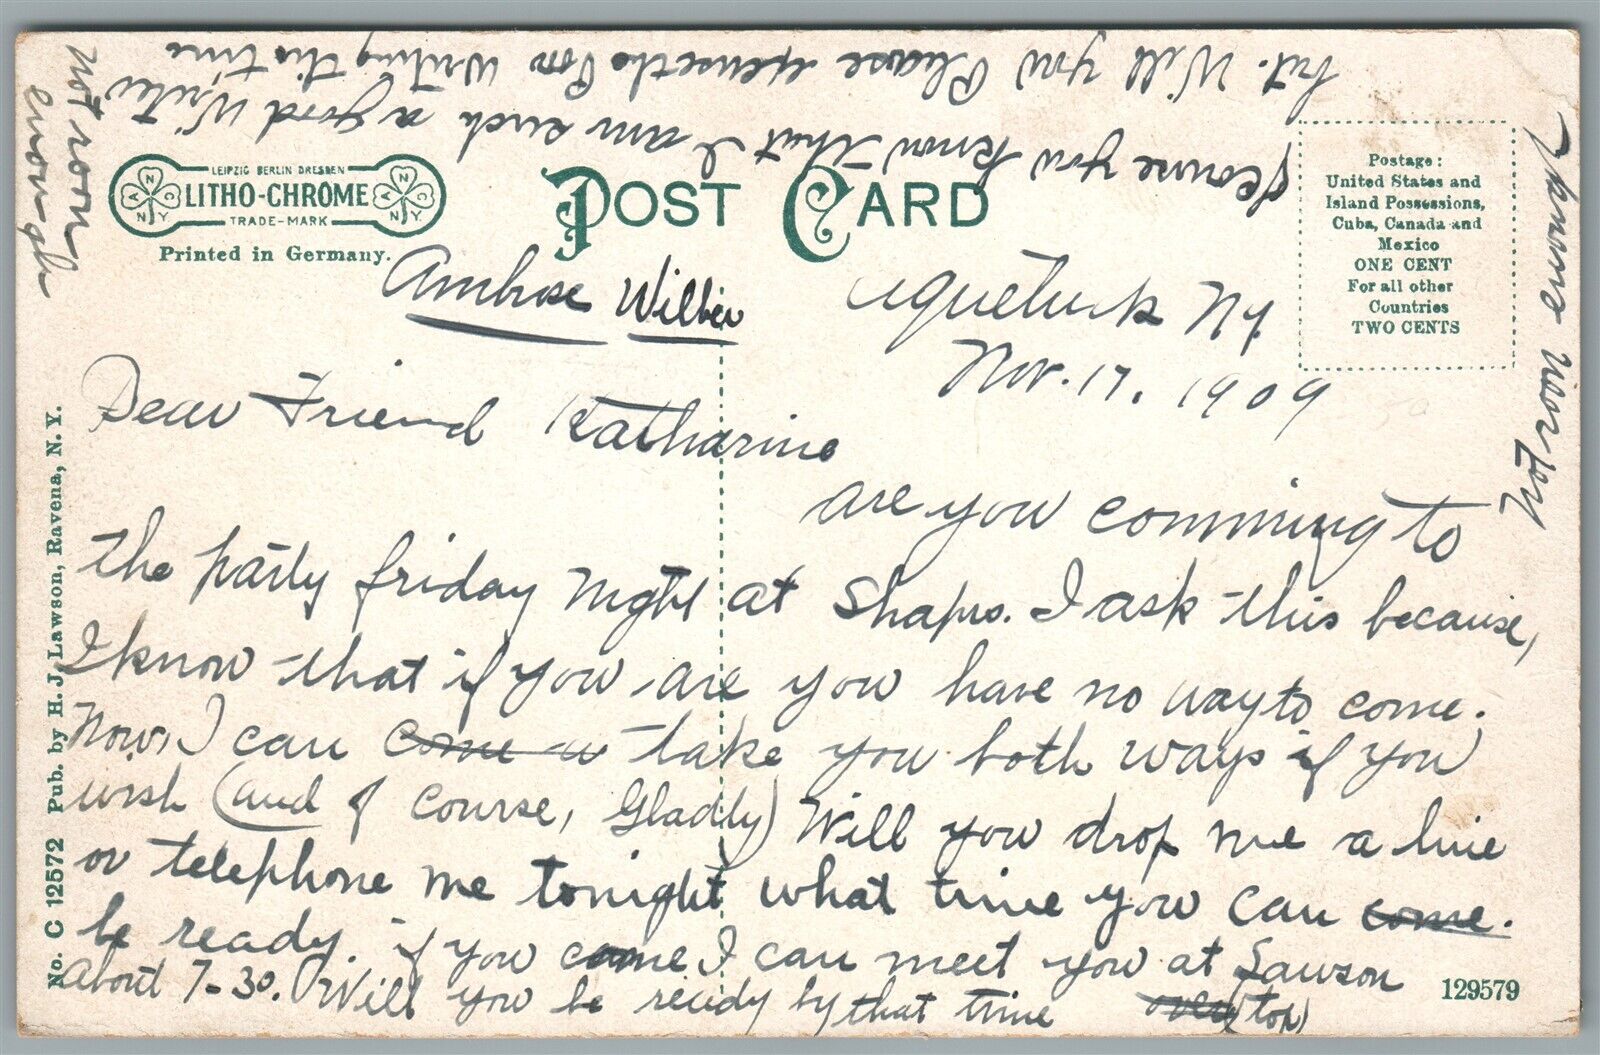 LEIPZIG BERLIN DRESDEN
LITHO-CHROME
TRADE-MARK
ANCNY
ANCNY
Printed in Germany.
POST CARD
Postage:
United States and
Island Possessions,
Cuba, Canada and
Mexico
ONE CENT
For all other
Countries
TWO CENTS
Ambrose Wilber
Aquetuck N.Y.
Nov. 17. 1909
Dear Friend Katharine
are you comming to
the party friday night at Shaprs. I ask this because,
I know that if you are you have no way to come.
Now, I can come a take you both ways if you
wish (and of course, Gladly) Will you drop me a line
or telephone me tonight what time you can come.
be ready. if you come I can meet you at Lawson
about 7-30. Will you be ready by that time over (top)
of course you know that I am such a good writer,
but. Will you Please the Poor writing this time
Not room
enough
Not room enough
No. C 12572 Pub. by H. J. Lawson, Ravena, N. Y.
129579